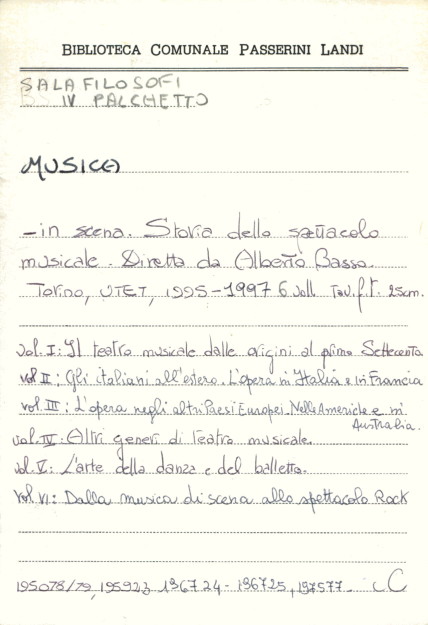 BIBLIOTECA COMUNALE PASSERINI LANDI
SALA FILOSOFI
IV PALCHETTO
MUSICA
- in scena. Storia dello spettacolo
musicale. Diretta da Alberto Basso.
Torino, UTET, 1995-1997 6 voll. Tav. f.t. 25cm.
vol. I: Il teatro musicale dalle origini al primo Settecento
vol II: Gli italiani all'estero. L'opera in Italia e in Francia
vol. III: L'opera negli altri Paesi Europei. Nelle Americhe e in
Australia.
vol. IV: Altri generi di teatro musicale.
vol. V: L'arte della danza e del balletto.
Vol VI: Dalla musica di scena allo spettacolo Rock
195078/79, 195923 196724-196725, 197577. C